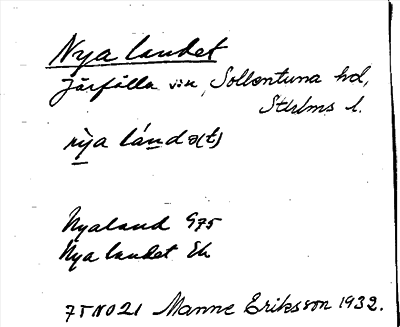 Nya landet
Järfälla sn, Sollentuna hd,
Sthlms l.
nỳa lánde(t)
Nyaland G75
Nya landet Ek
75NO21 Manne Eriksson 1932.